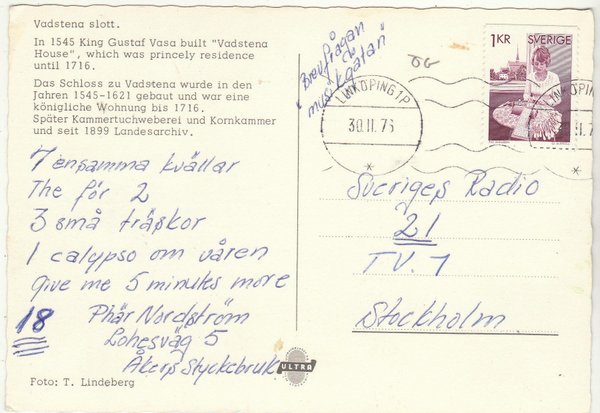 Vadstena slott.
In 1545 King Gustaf Vasa built "Vadstena
House", which was princely residence
until 1716.
Das Schloss zu Vadstena wurde in den
Jahren 1545-1621 gebaut und war eine
königliche Wohnung bis 1716.
Später Kammertuchweberei und Kornkammer
und seit 1899 Landesarchiv.
7 ensamma kvällar
The för 2
3 små träskor
1 calypso om våren
give me 5 minutes more
18 Phär Nordström
Lohesväg 5
Åkers Styckebruk
Foto: T. Lindeberg
ULTRA
"Brevfrågan
musikgåtan"
OG
LINKÖPING 1P
30.11.76
1 KR SVERIGE
LINKÖPING
Sveriges Radio
21
TV.1
Stockholm